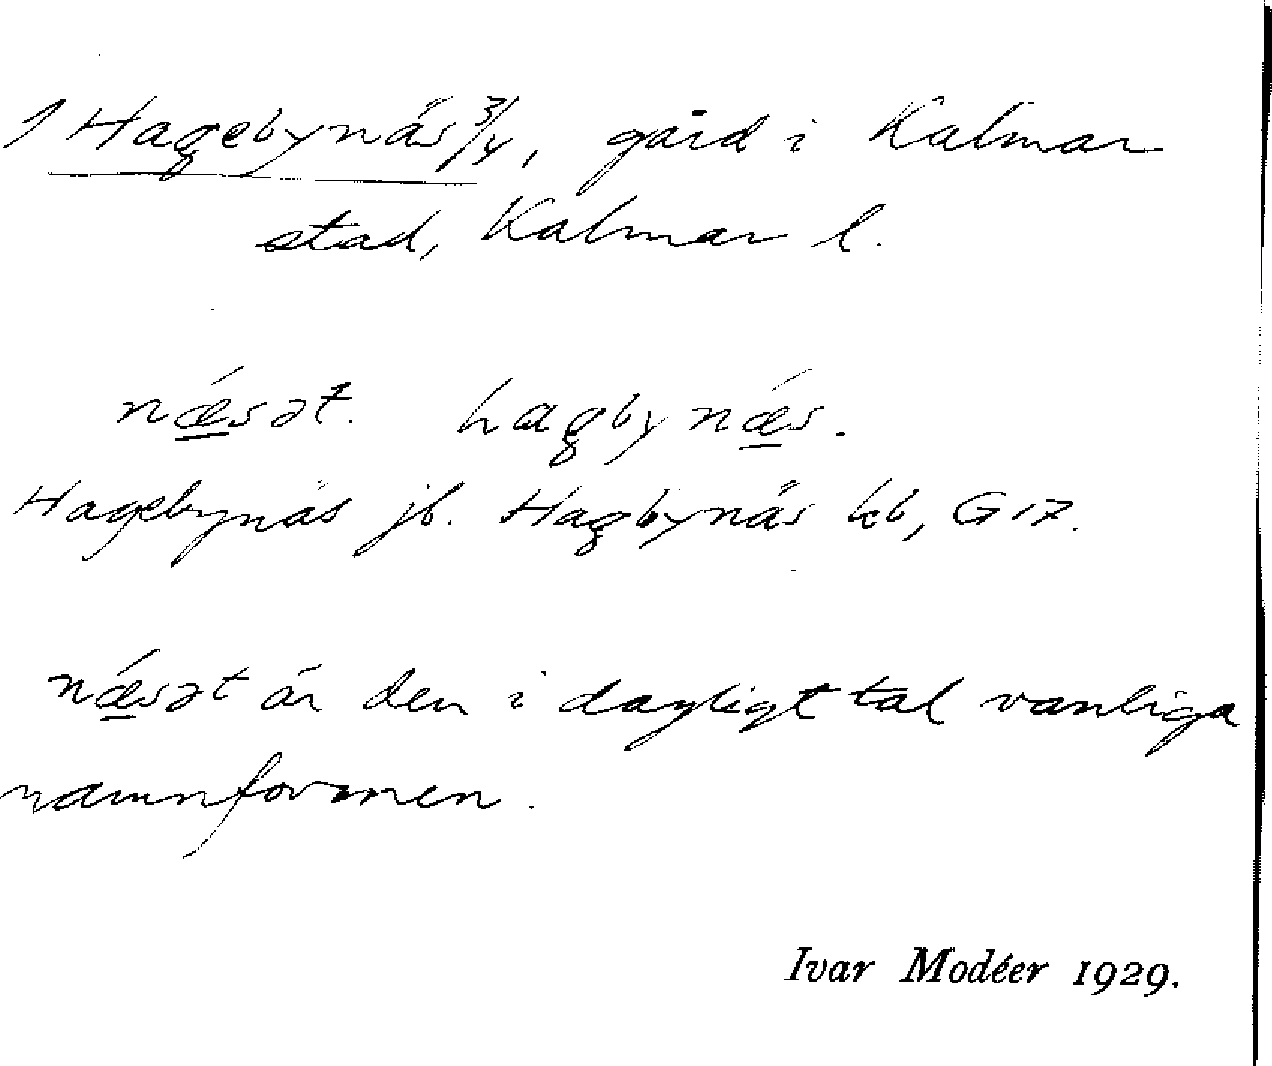 1 Hagebynäs 3/4, gård i Kalmar
stad, Kalmar l.
nǽ̲sət. hagbynǽ̲s.
Hagebynäs jb. Hagbynäs kb, G 17.
nǽ̲sət är den i dagligt tal vanliga
namnformen.
Ivar Modéer 1929.